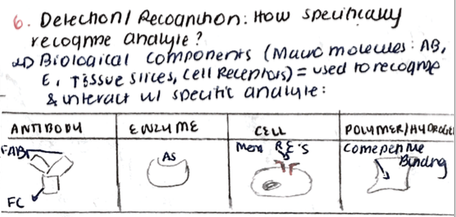 6. Detection/Recognition: How specifically
recognize analyte?
Biological components (Macromolecules: AB,
E, Tissue slices, Cell Receptors) = used to recognize
& interact w/ specific analyte:
ANTIBODY ENZYME CELL POLYMER/HYDROGEL
FAB AS Binding
FC